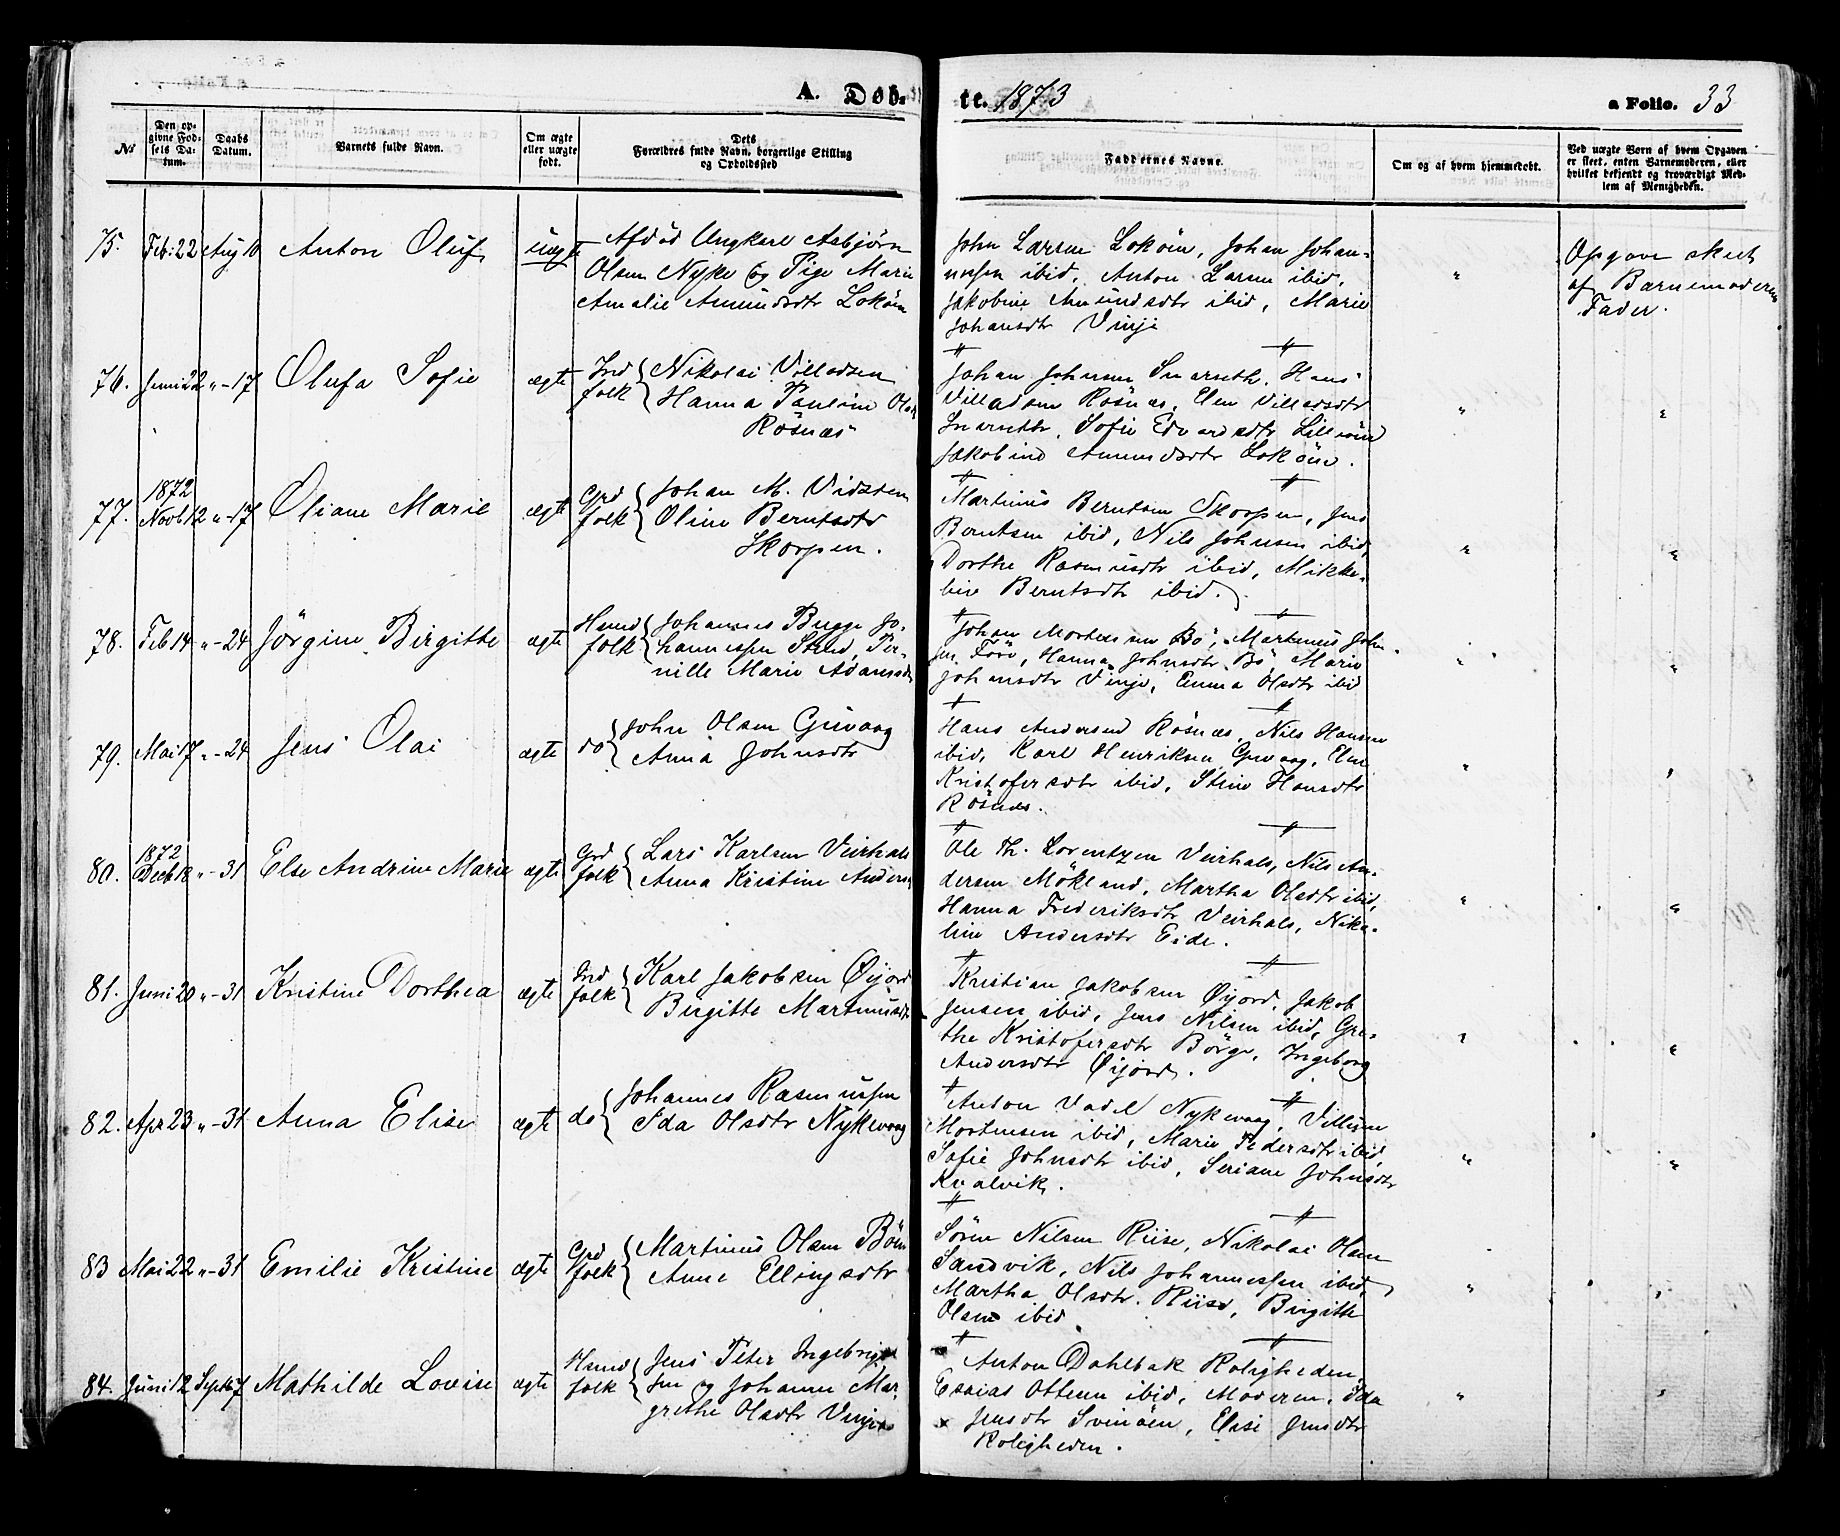 A. Døb-
te. 1873
a Folio. 33
No
Den op-
givne Fød-
sels Da-
tum.
Daabs
Datum.
Barnets fulde Navn.
Om ægte
eller uægte
født.
Dets
Forældres fulde Navn, borgerlige Stilling
og Opholdssted
Faddernes Navne.
Om og af hvem hjemmedøbt.
Ved uægte Børn af hvem Opgaven
er skeet, enten Barnemoderen, eller
hvilket bekjendt og troværdigt Med-
lem af Menigheden.
75. Feb: 22 Aug 10 Anton Oluf uægte
Afdöd Ungkarl Asbjörn
Olsen Nyke og Pige Marie
Amalie Amundsdtr Loköen
John Larsen Loköen, Johan Johan-
nesen ibid, Anton Larsen ibid,
Jakobine Amundsdtr ibid, Marie
Johansdtr Vinje
"
Opgave skeet
af Barnemoderens
Fader.
76. Juni 22 "-17 Olufa Sofie ægte
Ind
folk
Nikolai Villadsen
Hanna Pauline Ols
Rösnæs
Johan Johnsen Snarseth, Hans
Villadsen Rösnæs, Elen Villadsdtr
Snarsetr, Sofie Edvardsdtr Lilleöen
Jakobine Amundsdtr Loköen.
" "
77. 1872
Novb 12 "-17 Oliane Marie ægte
Grd
folk
Johan M. Vidsten
Oline Berntsdtr
Skorpen.
Martinus Berntsen Skorpen, Jens
Berntsen ibid, Nils Johnsen ibid,
Dorthe Rasmusdtr ibid, Mikke-
line Berntsdtr ibid.
" "
78. Feb 14 "-24 Jörgine Birgitte ægte
Hmd
folk
Johannes Bugge Jo-
hannessen Steed, Per-
nille Marie Adamsdtr
Johan Mortensen Bö, Martinus John-
sen Före, Hanna Johnsdtr Bö, Marie
Johansdtr Vinje, Emma Olsdtr ibid
" "
79. Mai 17 "-24 Jens Olai ægte
do
John Olsen Guvaag
Anna Johnsdtr
Hans Andersen Rösnæs, Nils Hansen
ibid, Karl Henriksen Guvaag, Elen
Kristofersdtr ibid, Stine Hansdtr
Rösnæs.
" "
80. 1872
Decb 18 "-31 Else Andrine Marie ægte
Grd
folk
Lars Karlsen Veirhals
Anna Kristine Anders
Ole Th. Lorentzen Veirhals, Nils An-
dersen Mökland, Martha Olsdtr ibid,
Hanna Frederiksdtr Veirhals, Niko-
line Andersdtr Eide.
" "
81. Juni 20 "-31 Kristine Dorthea ægte
Ind
folk
Karl Jakobsen Öyjord
Birgitte Martinusdtr
Kristian Jakobsen Öyjord, Jakob
Jensen ibid, Jens Nilsen ibid, Gre-
the Kristofersdtr Börge, Ingeborg
Andersdtr Öyjord.
" "
82. Apr 23 "-31 Anna Elise ægte
do
Johannes Rasmussen
Ida Olsdtr Nykevaag
Anton Vadel Nykevaag, Villum
Mortensen ibid, Marie Pedersdtr ibid,
Sofie Johnsdtr ibid, Seriane Johnsdtr
Kvalvik.
" "
83 Mai 22 "-31 Emilie Kristine ægte
Grd
folk
Martinus Olsen Böen
Anne Ellingsdtr
Sören Nilsen Riise, Nikolai Olsen
Sandvik, Nils Johannessen ibid,
Martha Olsdtr. Riise, Birgitte
Olsen ibid
" "
84. Juni 12 Septb 7 Mathilde Lovise ægte
Hmd
folk
Jens Peter Ingebrigt-
sen og Johanne Mar-
grethe Olsdtr Vinje
Anton Dahlbak Roligheden,
Esaias Ottesen ibid, Moderen, Ida
Jensdtr Svinöen, Elise Jensdtr
Roligheden.
" "